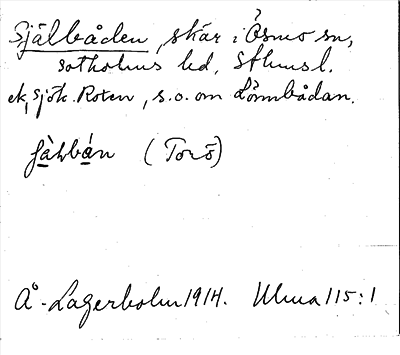 Själbåden, skär i Ösmo sn,
Sotholms hd, Sthms l.
ek, sjök. Roten, s.o. om Lömbådan.
(Torö)
Å. Lagerholm 1914. Ulma 115:1